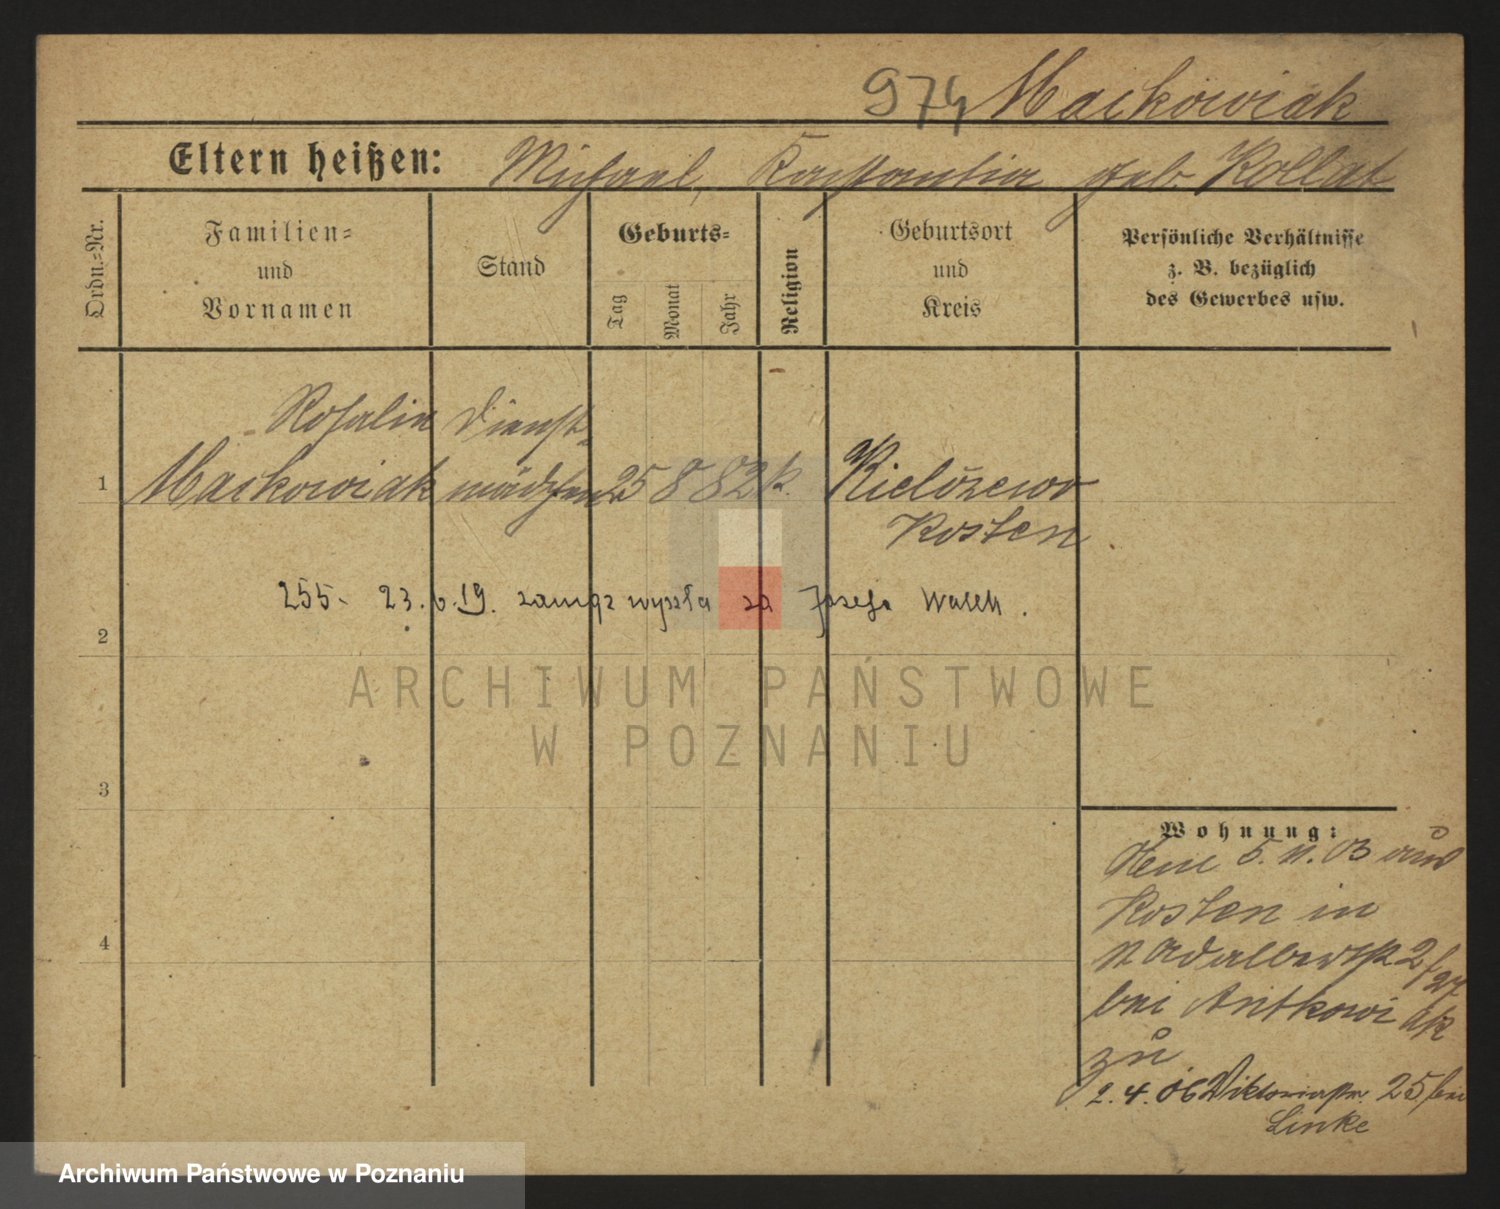 974 Maćkowiak
Eltern heißen: Michael, Konstantia geb. Kollat
Ordn.-Nr.
Familien-
und
Vornamen
Stand
Geburts-
Tag
Monat
Jahr
Religion
Geburtsort
und
Kreis
Persönliche Verhältnisse
z. B. bezüglich
des Gewerbes usw.
Rosalie Dienst-
1 Maćkowiak mädchen 25 8 82 k. Kielczewo
Kosten
255- 23.6.19. zamąż wyszła za Józefa Wasch.
2
ARCHIWUM PAŃSTWOWE
W POZNANIU
3
Wohnung:
5. 11. 03 aus
Kosten in
Adalbertstr 2
bei Antkowiak
zu
4
2. 4. 06 Viktoriastr. 25 bei
Linke
Archiwum Państwowe w Poznaniu